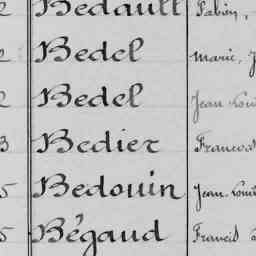 2 Bedault Fabien,
2 Bedel Marie, J
2 Bedel Jean Loui
3 Bedier Francois
5 Bedouin Jean-Loui
5 Bégaud Francis